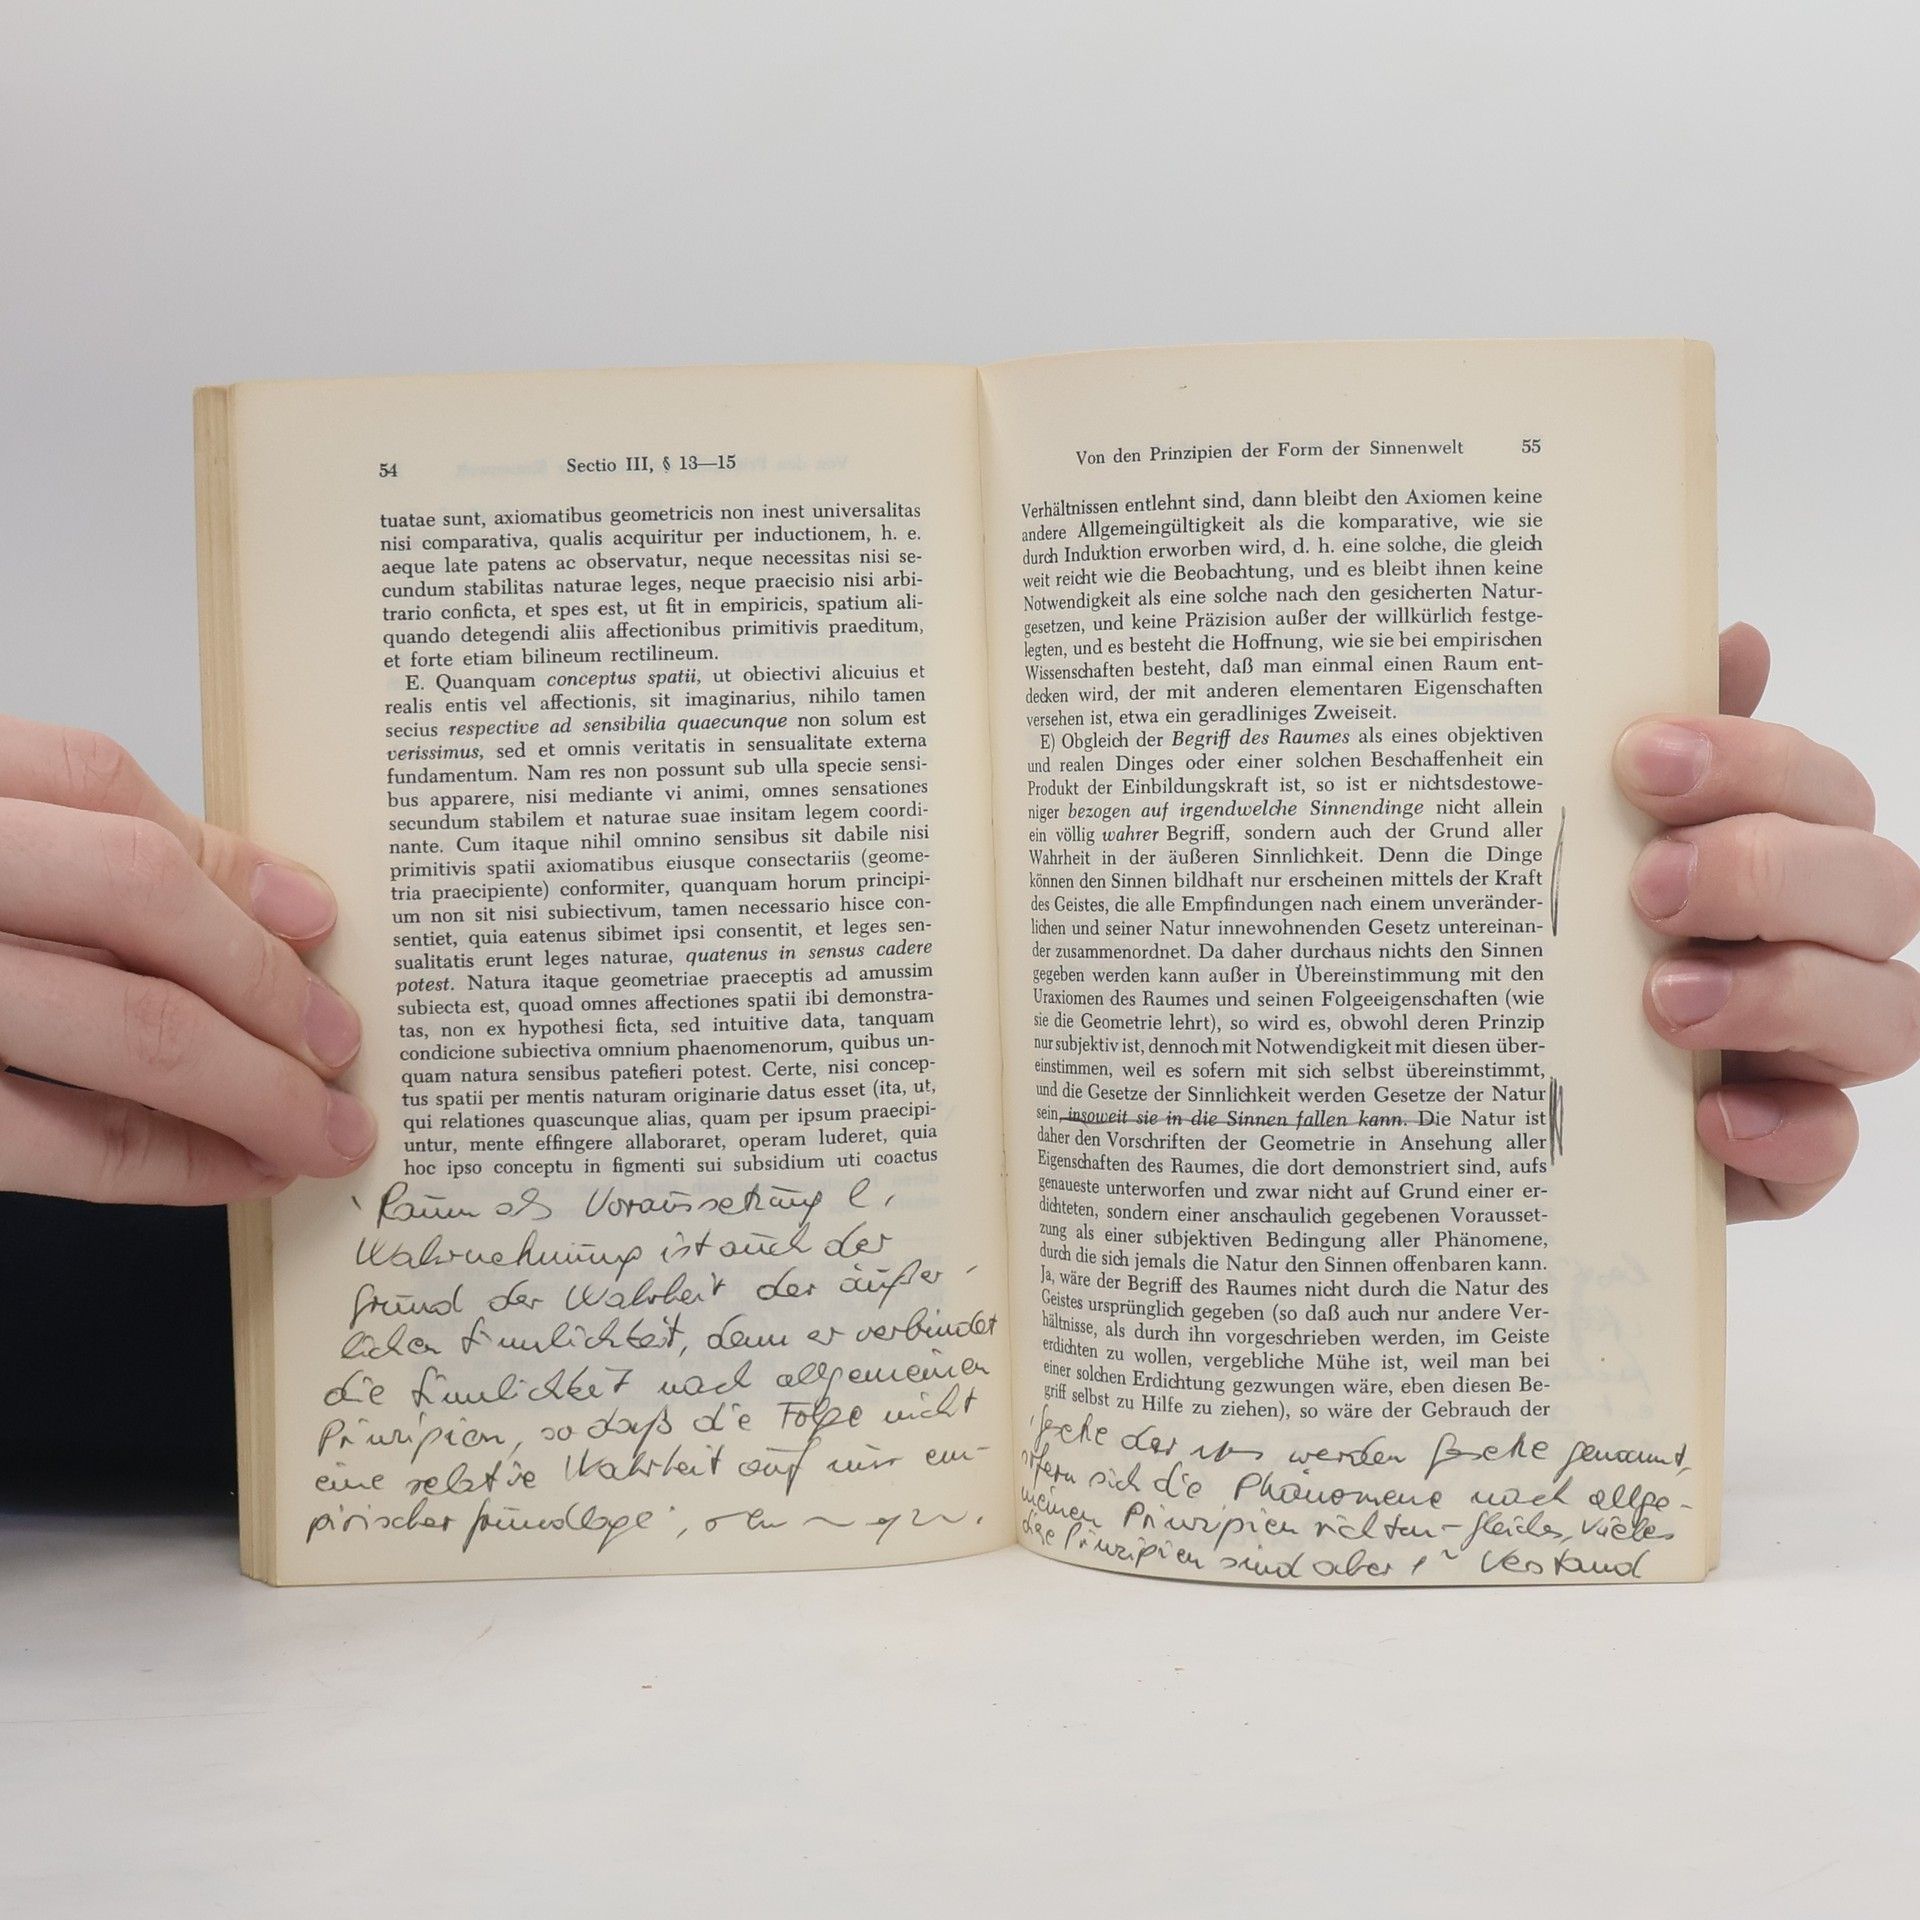 54 Sectio III, § 13—15
tuatae sunt, axiomatibus geometricis non inest universalitas
nisi comparativa, qualis acquiritur per inductionem, h. e.
aeque late patens ac observatur, neque necessitas nisi se-
cundum stabilitas naturae leges, neque praecisio nisi arbi-
trario conficta, et spes est, ut fit in empiricis, spatium ali-
quando detegendi aliis affectionibus primitivis praeditum,
et forte etiam bilineum rectilineum.
E. Quanquam conceptus spatii, ut obiectivi alicuius et
realis entis vel affectionis, sit imaginarius, nihilo tamen
secius respective ad sensibilia quaecunque non solum est
verissimus, sed et omnis veritatis in sensualitate externa
fundamentum. Nam res non possunt sub ulla specie sensi-
bus apparere, nisi mediante vi animi, omnes sensationes
secundum stabilem et naturae suae insitam legem coordi-
nante. Cum itaque nihil omnino sensibus sit dabile nisi
primitivis spatii axiomatibus eiusque consectariis (geome-
tria praecipiente) conformiter, quanquam horum principi-
um non sit nisi subiectivum, tamen necessario hisce con-
sentiet, quia eatenus sibimet ipsi consentit, et leges sen-
sualitatis erunt leges naturae, quatenus in sensus cadere
potest. Natura itaque geometriae praeceptis ad amussim
subiecta est, quoad omnes affectiones spatii ibi demonstra-
tas, non ex hypothesi ficta, sed intuitive data, tanquam
condicione subiectiva omnium phaenomenorum, quibus un-
quam natura sensibus patefieri potest. Certe, nisi concep-
tus spatii per mentis naturam originarie datus esset (ita, ut,
qui relationes quascunque alias, quam per ipsum praecipi-
untur, mente effingere allaboraret, operam luderet, quia
hoc ipso conceptu in figmenti sui subsidium uti coactus
Raum als Voraussetzung
Wahrnehmung ist auch der
Grund der Wahrheit der äußer-
lichen Sinnlichkeit, denn er verbindet
die Sinnlichkeit nach allgemeinen
Prinzipien, so daß die Folge nicht
eine relative Wahrheit auf nur em-
pirischer Grundlage
Von den Prinzipien der Form der Sinnenwelt 55
Verhältnissen entlehnt sind, dann bleibt den Axiomen keine
andere Allgemeingültigkeit als die komparative, wie sie
durch Induktion erworben wird, d. h. eine solche, die gleich
weit reicht wie die Beobachtung, und es bleibt ihnen keine
Notwendigkeit als eine solche nach den gesicherten Natur-
gesetzen, und keine Präzision außer der willkürlich festge-
legten, und es besteht die Hoffnung, wie sie bei empirischen
Wissenschaften besteht, daß man einmal einen Raum ent-
decken wird, der mit anderen elementaren Eigenschaften
versehen ist, etwa ein geradliniges Zweiseit.
E) Obgleich der Begriff des Raumes als eines objektiven
und realen Dinges oder einer solchen Beschaffenheit ein
Produkt der Einbildungskraft ist, so ist er nichtsdestowe-
niger bezogen auf irgendwelche Sinnendinge nicht allein
ein völlig wahrer Begriff, sondern auch der Grund aller
Wahrheit in der äußeren Sinnlichkeit. Denn die Dinge
können den Sinnen bildhaft nur erscheinen mittels der Kraft
des Geistes, die alle Empfindungen nach einem unveränder-
lichen und seiner Natur innewohnenden Gesetz untereinan-
der zusammenordnet. Da daher durchaus nichts den Sinnen
gegeben werden kann außer in Übereinstimmung mit den
Uraxiomen des Raumes und seinen Folgeeigenschaften (wie
sie die Geometrie lehrt), so wird es, obwohl deren Prinzip
nur subjektiv ist, dennoch mit Notwendigkeit mit diesen über-
einstimmen, weil es sofern mit sich selbst übereinstimmt,
und die Gesetze der Sinnlichkeit werden Gesetze der Natur
sein, insoweit sie in die Sinnen fallen kann. Die Natur ist
daher den Vorschriften der Geometrie in Ansehung aller
Eigenschaften des Raumes, die dort demonstriert sind, aufs
genaueste unterworfen und zwar nicht auf Grund einer er-
dichteten, sondern einer anschaulich gegebenen Vorausset-
zung als einer subjektiven Bedingung aller Phänomene,
durch die sich jemals die Natur den Sinnen offenbaren kann.
Ja, wäre der Begriff des Raumes nicht durch die Natur des
Geistes ursprünglich gegeben (so daß auch nur andere Ver-
hältnisse, als durch ihn vorgeschrieben werden, im Geiste
erdichten zu wollen, vergebliche Mühe ist, weil man bei
einer solchen Erdichtung gezwungen wäre, eben diesen Be-
griff selbst zu Hilfe zu ziehen), so wäre der Gebrauch der
der werden Gesetze genannt,
sofern sich die Phänomene nach allge-
meinen Prinzipien richten
Prinzipien sind aber Verstand